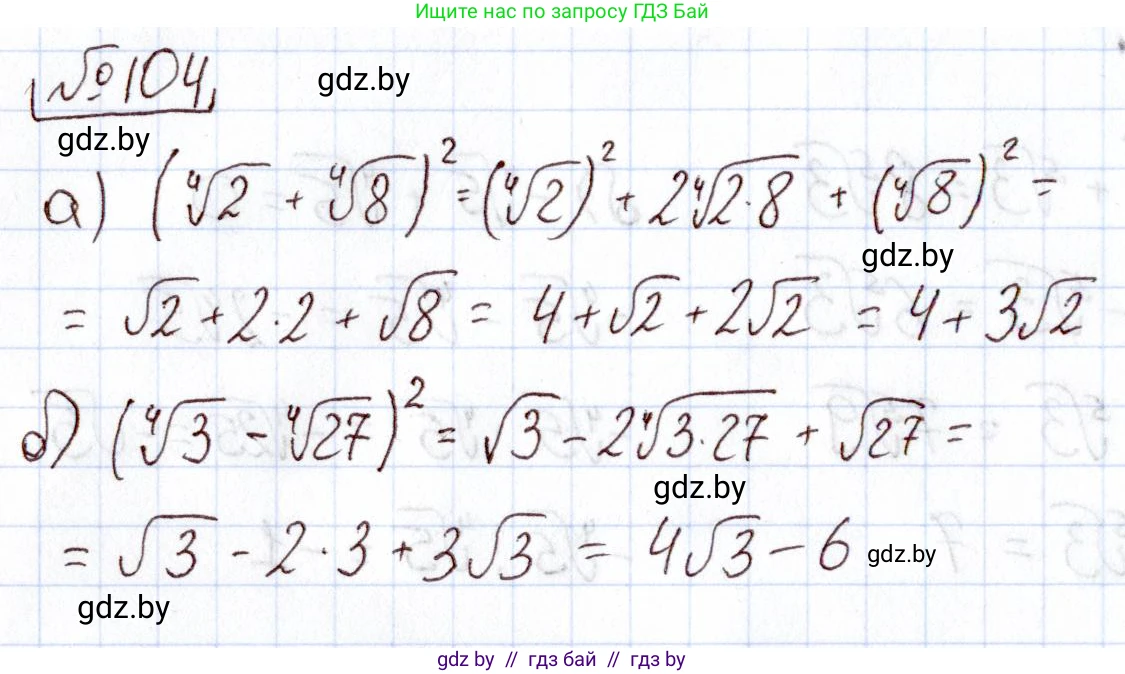 Ищите нас по запросу ГДЗ Бай
№104
gdz.by
gdz.by
а) (∜2 + ∜8)² = (∜2)² + 2∜2·8 + (∜8)² =
gdz.by
= √2 + 2·2 + √8 = 4 + √2 + 2√2 = 4 + 3√2
б) (∜3 - ∜27)² = √3 - 2∜3·27 + √27 =
gdz.by
= √3 - 2·3 + 3√3 = 4√3 - 6
gdz.by
gdz.by
gdz by // гдз бай // гдз by